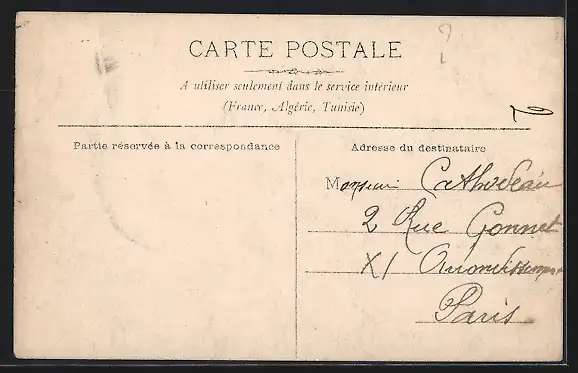 CARTE POSTALE
A utiliser seulement dans le service intérieur
(France, Algérie, Tunisie)
Partie réservée à la correspondance
Adresse du destinataire
Monsieur
2 Rue Gonnet
XI Arrondissement
Paris